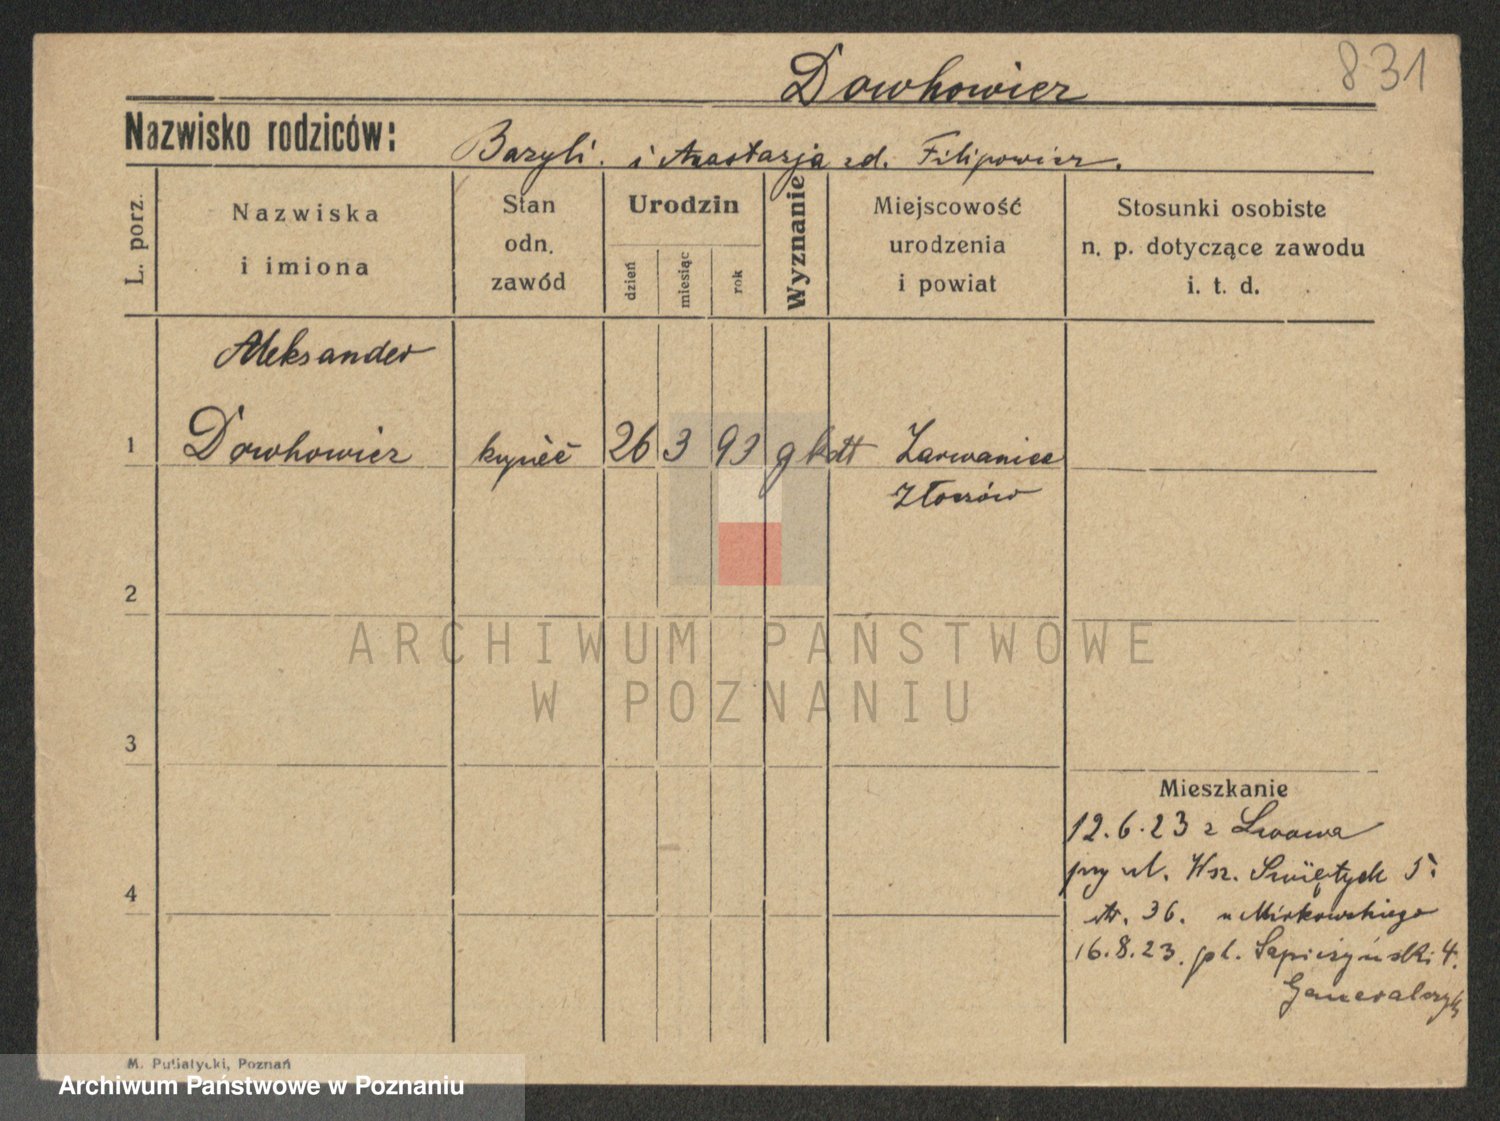 831
Dowhowicz
Nazwisko rodziców:
Bazyli i Anastazja zd. Filipowicz.
L. porz.
Nazwiska
i imiona
Stan
odn.
zawód
Urodzin
dzień
miesiąc
rok
Wyznanie
Miejscowość
urodzenia
i powiat
Stosunki osobiste
n. p. dotyczące zawodu
i. t. d.
Aleksander
1 Dowhowicz kupiec 26 3 93 gk Zarwanica
Złoczów
2
ARCHIWUM PAŃSTWOWE
W POZNANIU
3
Mieszkanie
12.6.23 z Lwowa
4
przy ul. Wsz. Świętych 5.
36. u Mirkowskiego
16.8.23. pl. Sapieżyński 4.
M. Putiatycki, Poznań
Archiwum Państwowe w Poznaniu